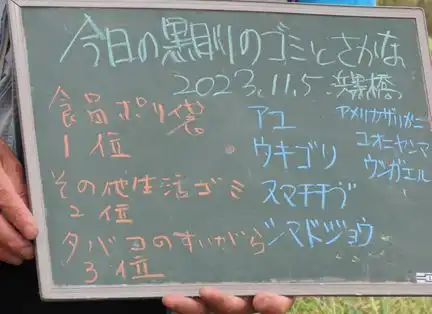 今日の黒目川のゴミとさかな
2023.11.5
食品ポリ袋
1位
その他生活ゴミ
2位
タバコのすいがら
3位
アユ
ウキゴリ
ヌマチチブ
シマドジョウ
アメリカザリガニ
コオニヤンマ
ウシガエル